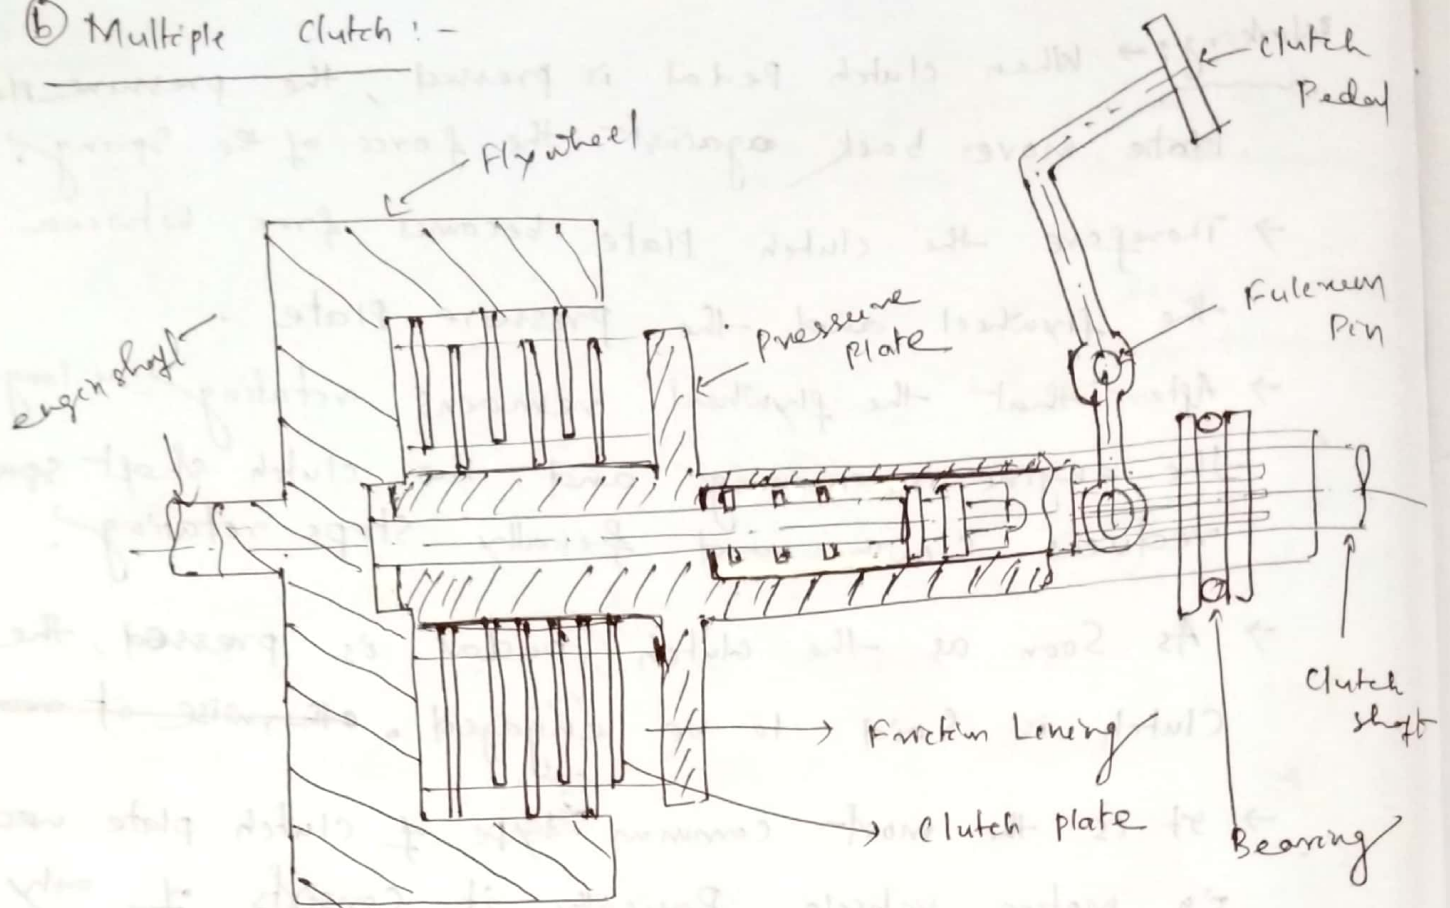 ⓑ Multiple Clutch :-
Clutch
Pedal
Flywheel
Fulcrum
Pin
Pressure
plate
engin shaft
Clutch
shaft
Friction Lining
Clutch plate
Bearing